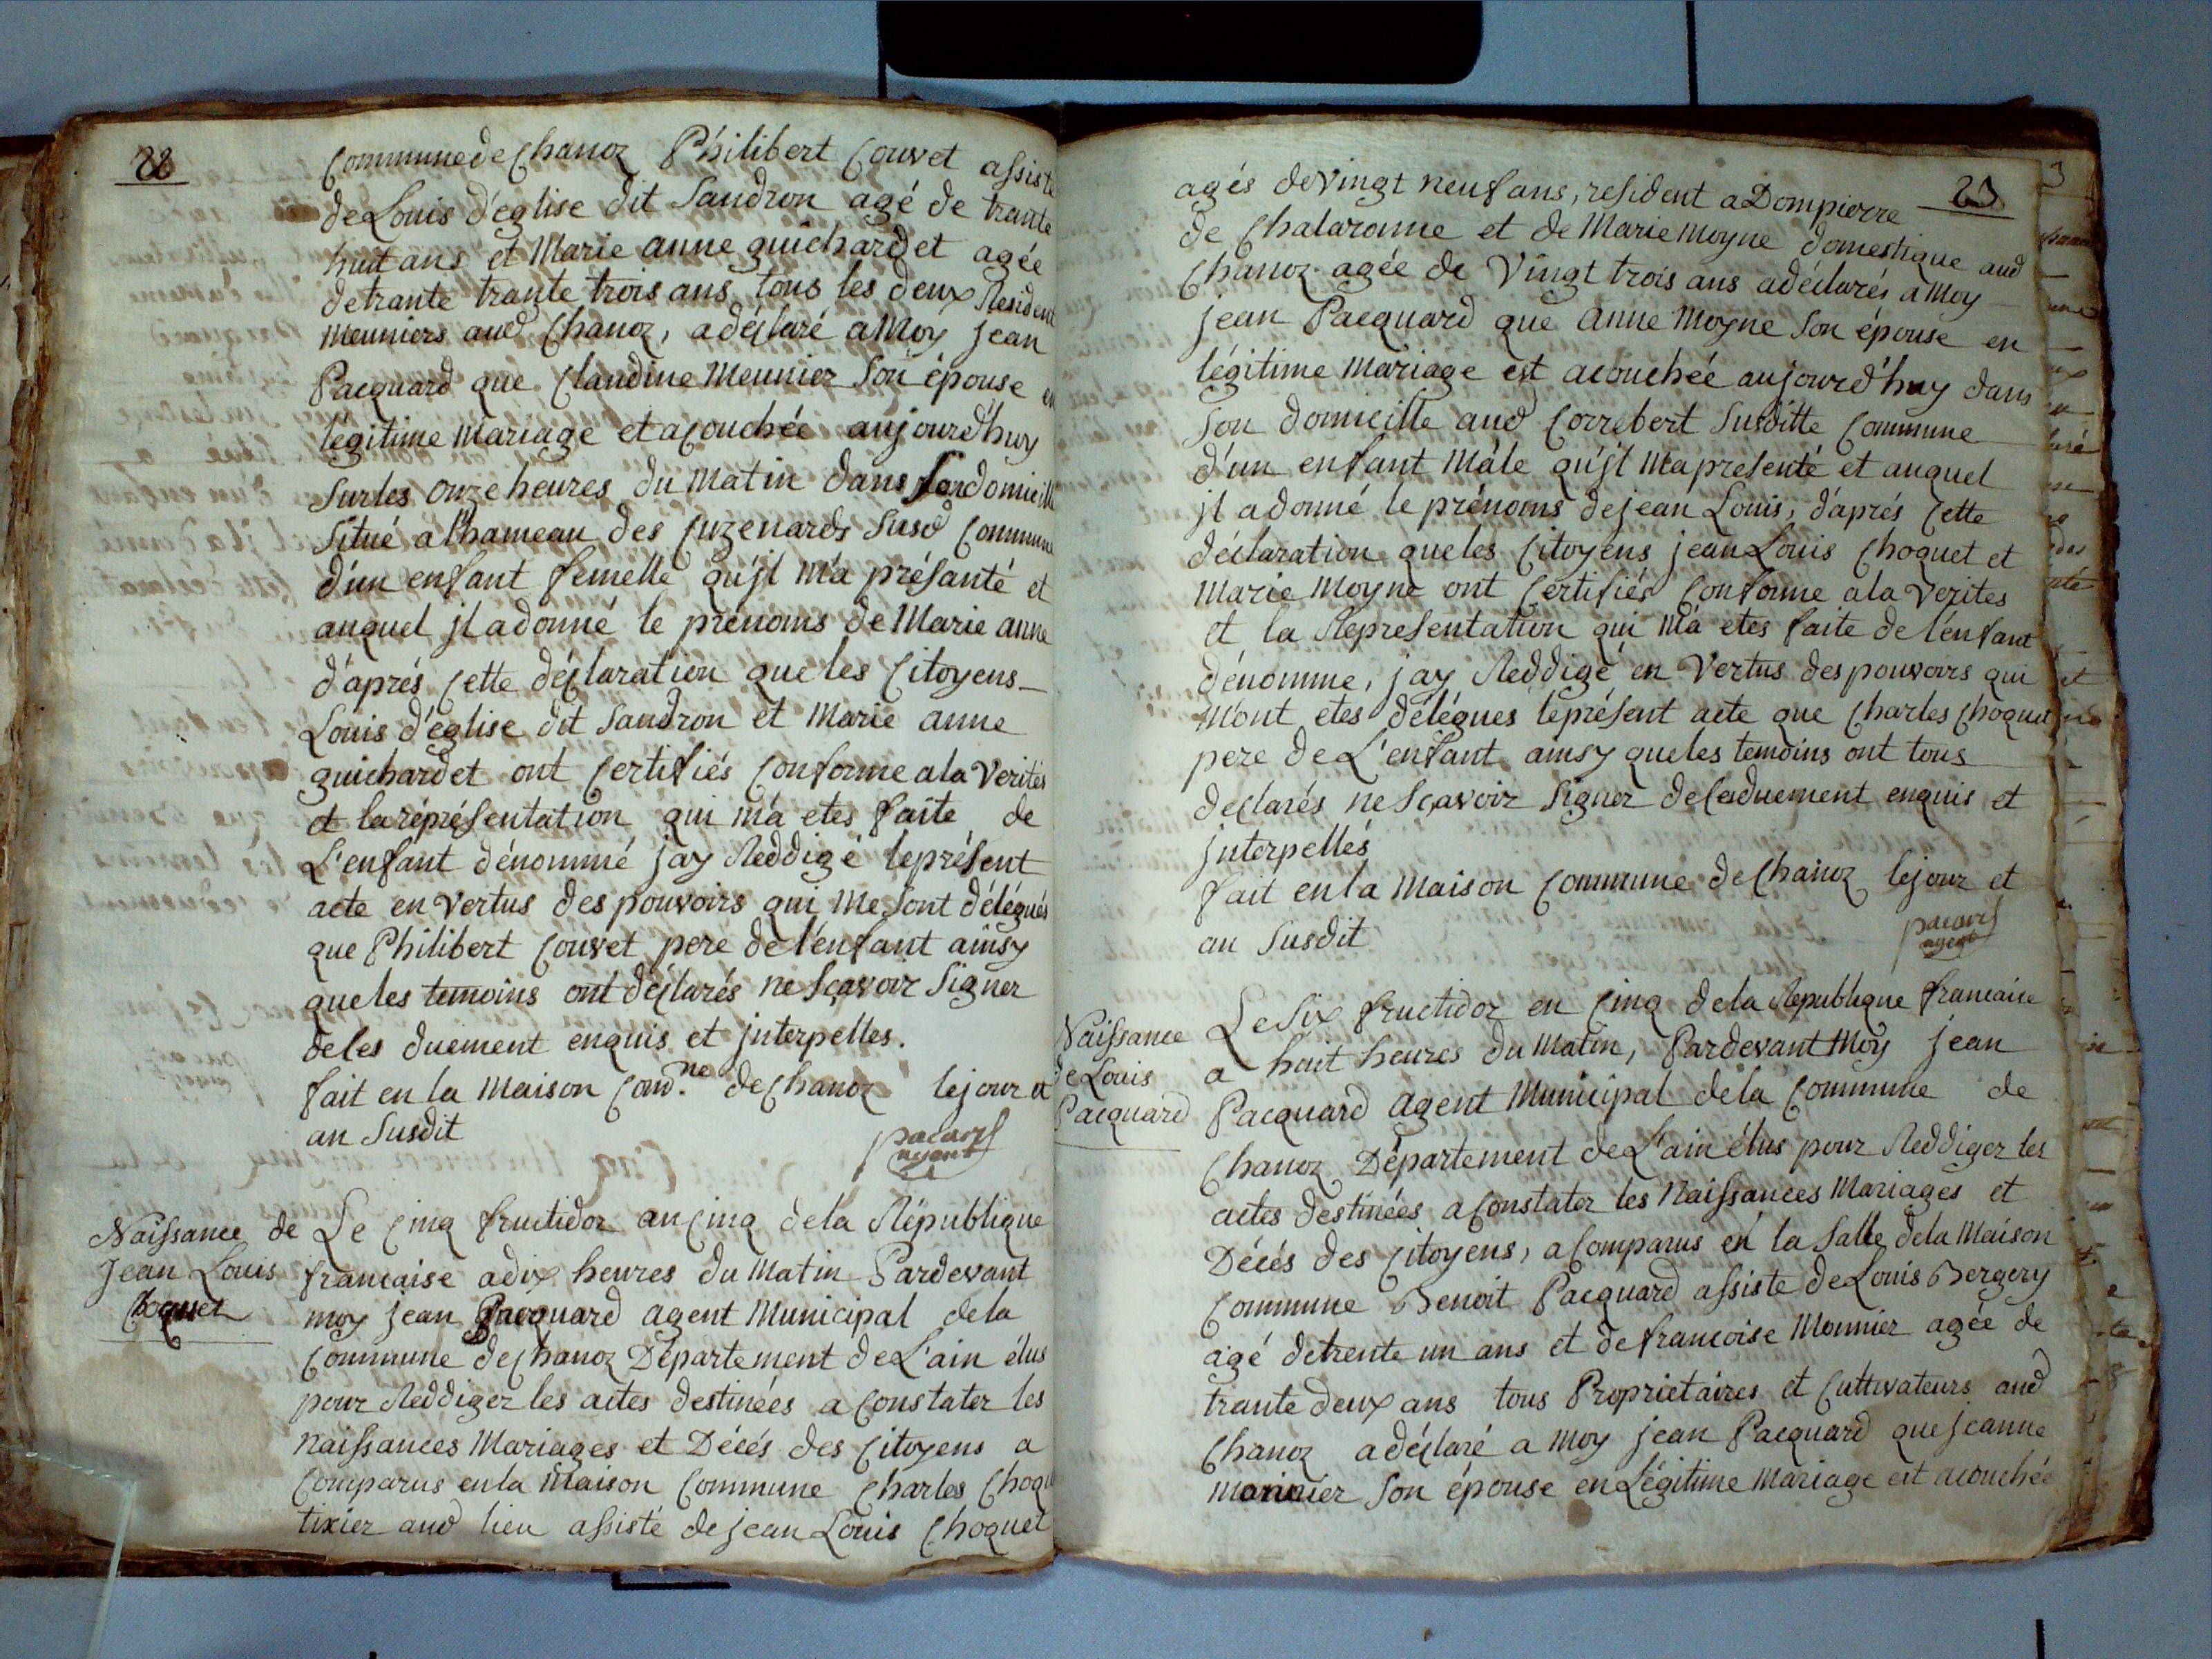 22
Commune de Chanoz Philibert Couvet assisté
de Louis d'église dit Sandron agé de trante
huit ans et Marie anne guichardet agée
de trante trante trois ans, tous les deux Resident
Meuniers aud Chanoz, a déclaré a Moy jean
Pacquard que Claudine Meunier Son épouse en
légitime Mariage et acouchée aujourd'huy
Sur les onze heures du Matin dans Son domicille
Situé a l'hameau des Cuzenards Susd Commune
d'un enfant femelle qu'jl m'a présanté et
auquel jl a donné le prénoms de Marie anne
d'aprés Cette déclaration que les Citoyens
Louis d'église dit Sandron et Marie anne
guichardet ont Certifiés Conforme a la Verités
et la réprésentation qui m'a etes faite de
L'enfant dénommé jay Reddigé le présent
acte en Vertus des pouvoirs qui me sont délégués
que Philibert Couvet pere de l'enfant ainsy
que les temoins ont déclarés ne Sçavoir Signer
de les duement enquis et jnterpelles.
fait en la Maison Com.ne de Chanoz le jour et
an Susdit
pacard
agent
Naissance de
Jean Louis
Choquet
Le Cinq fructidor an Cinq de la République
francaise a dix heures du Matin Pardevant
moy jean Pacquard agent Municipal de la
Commune de Chanoz Département de L'ain élus
pour Reddiger les actes destinées a Constater les
naissances Mariages et Décés des Citoyens a
Comparus en la Maison Commune Charles Choquet
tixier aud lieu assisté de jean Louis Choquet
23
agés de vingt neuf ans, resident a Dompierre
de Chalaronne et de Marie moyne domestique aud
Chanoz agée de Vingt trois ans a déclarés a Moy
jean Pacquard que anne Moyne Son épouse en
légitime Mariage est acouchée aujourd'huy dans
Son domicille aud Correbert Susditte Commune
d'un enfant Mâle qu'jl m'a presenté et auquel
jl a donné le prénoms de jean Louis, d'aprés Cette
déclaration que les Citoyens jean Louis Choquet et
Marie Moyne ont Certifiés Conforme a la Verites
et la Representation qui m'a etes faite de l'enfant
dénomme, jay Reddigé en Vertus des pouvoirs qui
M'ont etes délégues le présent acte que Charles Choquet
pere de L'enfant ainsy que les temoins ont tous
declarés ne Sçavoir Signer de Ce duement enquis et
jnterpellés
fait en la Maison Commune de Chanoz le jour et
an Susdit
pacard
agent
Naissance
de Louis
Pacquard
Le Six fructidor en Cinq de la Republique francaise
a huit heures du Matin, Pardevant Moy jean
Pacquard agent Municipal de la Commune de
Chanoz Département de L'ain élus pour Reddiger les
actes destinées a Constater les Naissances Mariages et
Décés des Citoyens, a Comparus en la Salle de la Maison
Commune Benoit Pacquard assiste de Louis Bergery
agé de trente un ans et de francoise Monnier agée de
trante deux ans tous Proprietaires et Cultivateurs aud
Chanoz a déclaré a moy jean Pacquard que jeanne
monnier Son épouse en Légitime Mariage est acouchée